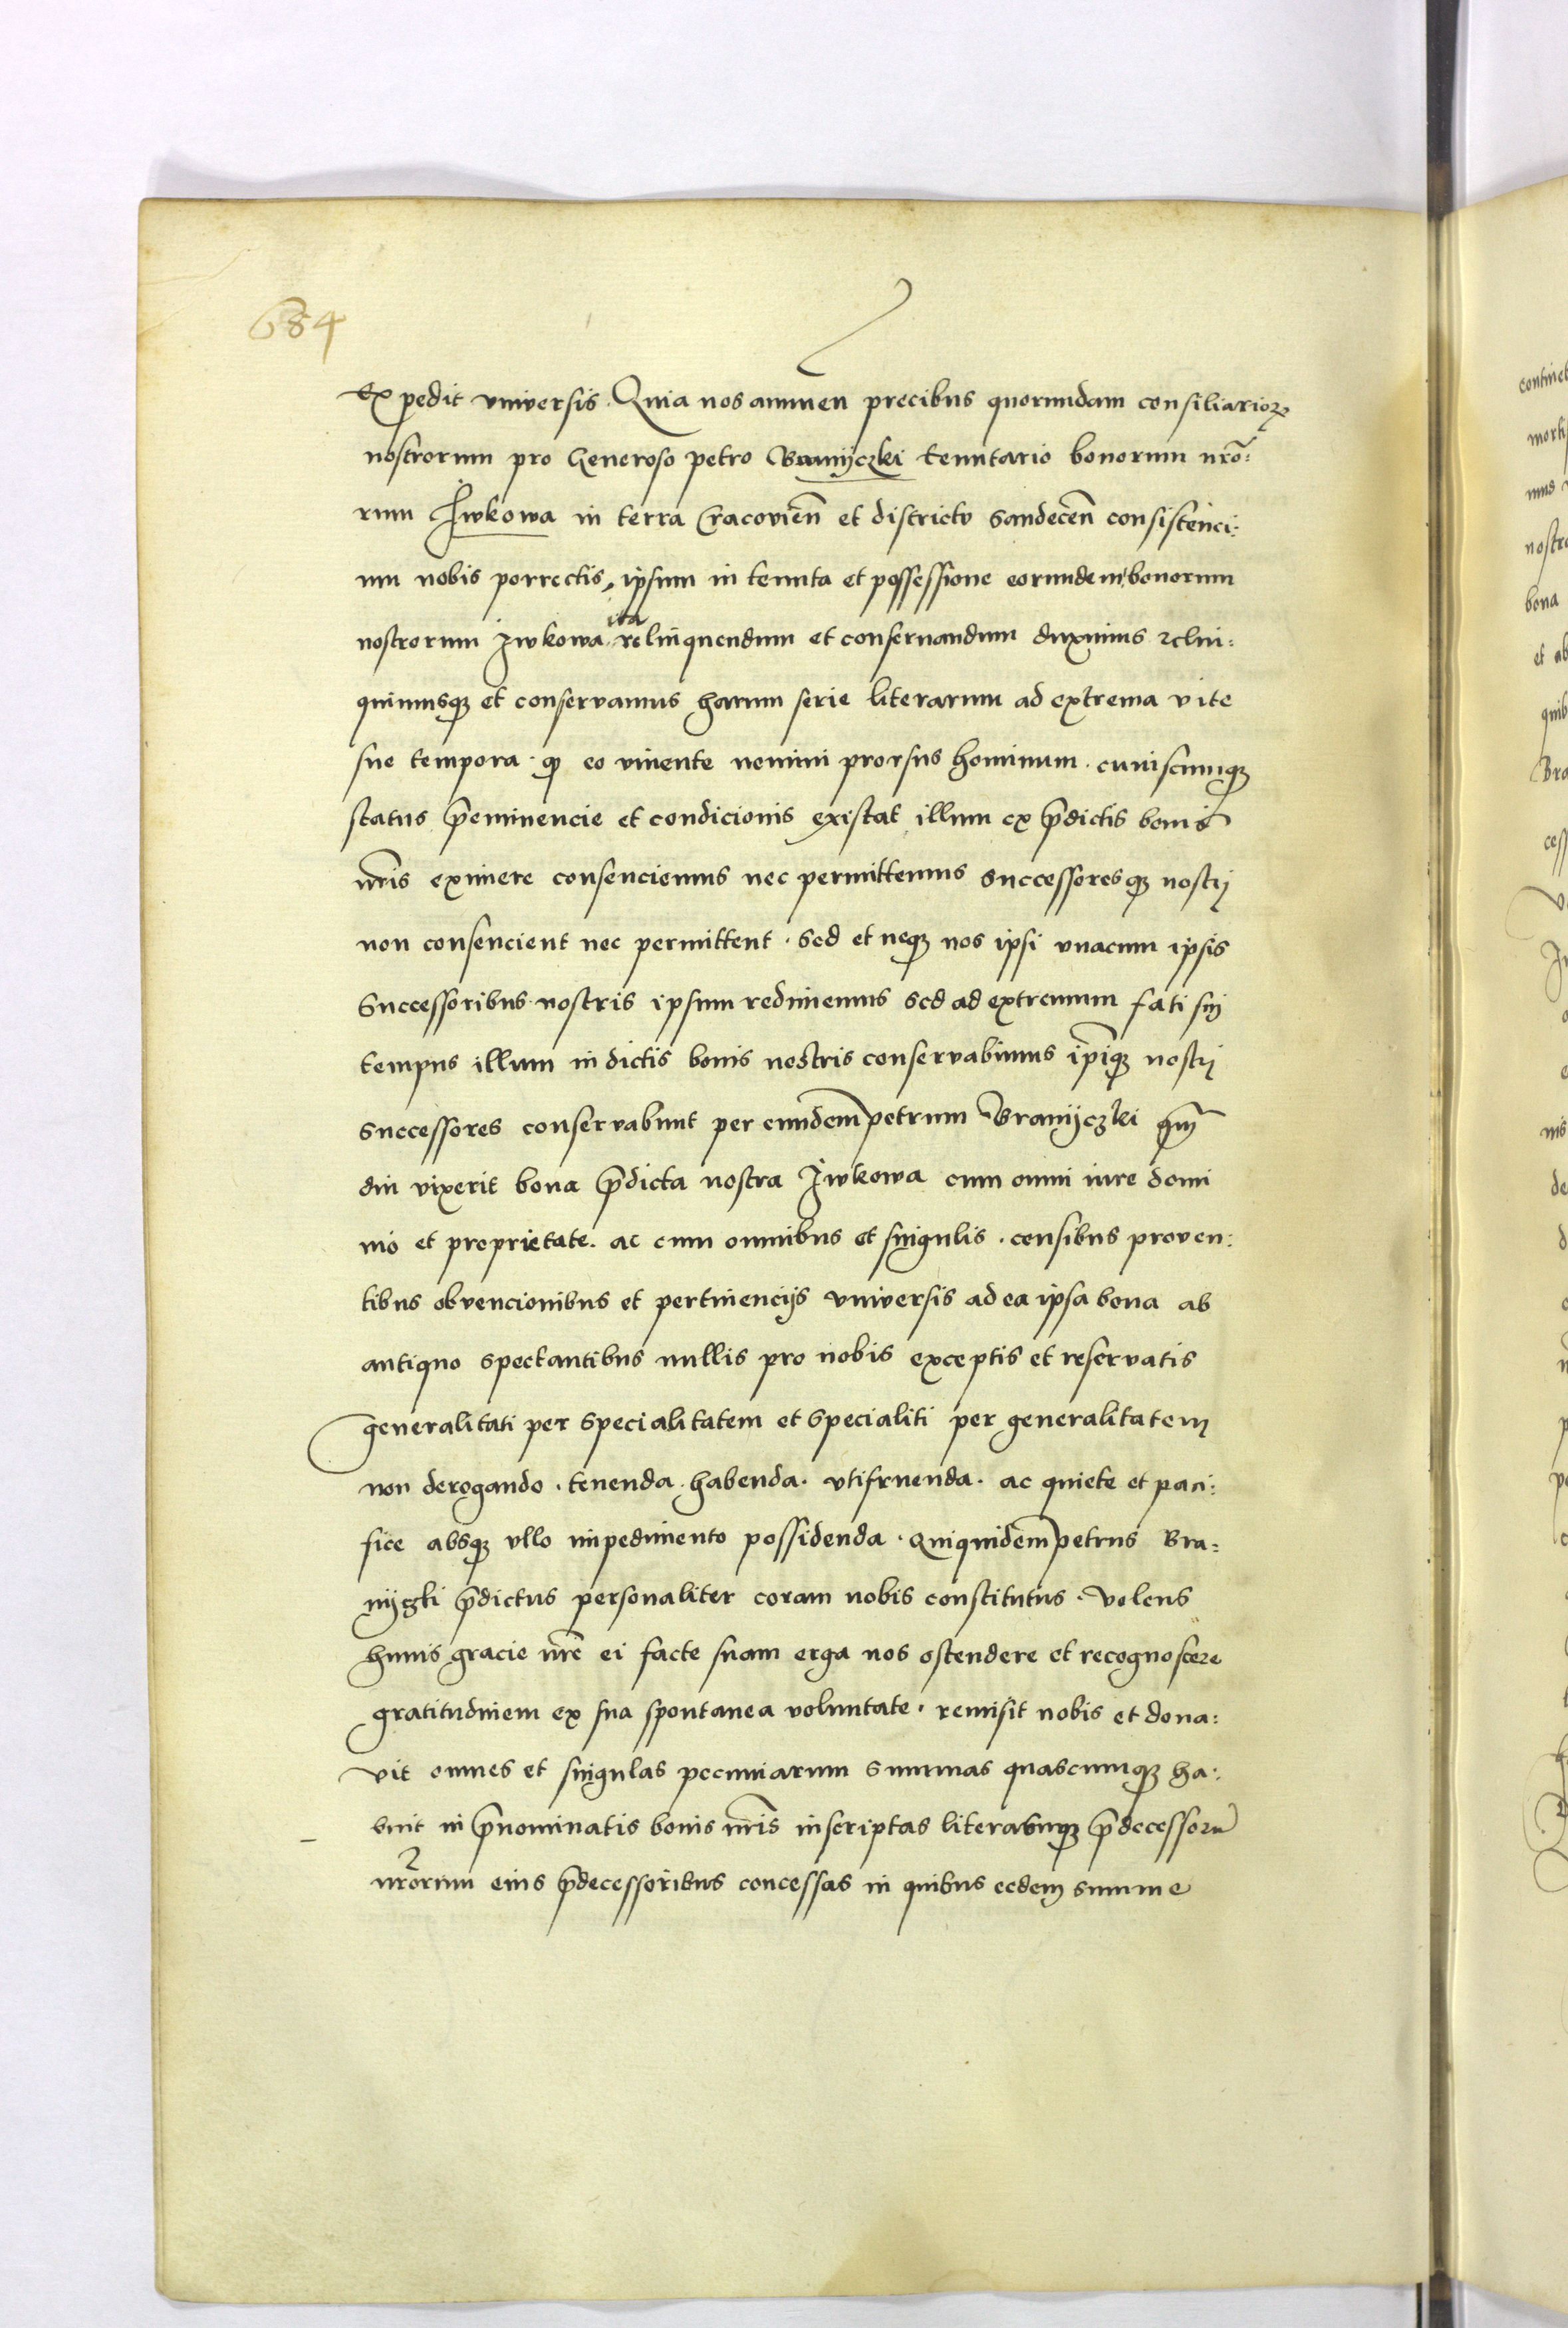 684
Expedit vniversis. Quia nos annuen precibus quorundam consiliarioꝝ
nostrorum pro Generoso petro Branyczki tenutario bonorum nrõ:
rum Iwkowa in terra Cracovień et districtv Sandeceń consistenci:
um nobis porrectis, ipsum in tenuta et possessione eorundem bonorum
nostrorum Iwkowa ita relinquendum et conseruandum duximus relin:
quimusqꝫ et conservamus harum serie literarum ad extrema vite
sue tempora. qꝫ eo viuente nemini prorsus hominum. cuiuscumqꝫ
status p̄eminencie et condicionis existat illum ex p̄dictis bonis
nr̃is eximere consenciemus nec permittemus Successoresqꝫ nostrj
non consencient nec permittent. Sed et neqꝫ nos ipsi vnacum ipsis
Successoribus nostris ipsum redimemus Sed ad extremum fati sui
tempus illum in dictis bonis nostris conservabimus ip̄iqꝫ nostrj
Successores conservabunt per eundem petrum Branyczki qm̄
diu vixerit bona p̄dicta nostra Iwkowa cum omni iure domi
nio et proprietate. ac cum omnibus et singulis. censibus proven:
tibus obvencionibus et pertinencijs vniversis ad ea ipsa bona ab
antiquo Spectantibus nullis pro nobis exceptis et reservatis
generalitati per Specialitatem et Specialiti per generalitatem
non derogando. tenenda. habenda. vtifruenda. ac quiete et paci:
fice absqꝫ vllo impedimento possidenda. Quiquidem petrus Bra:
nyczki p̄dictus personaliter coram nobis constitutus. Volens
huius gracie nr̃e ei facte suam erga nos ostendere et recognoscere
gratitudinem ex sua spontanea voluntate. remisit nobis et dona:
vit omnes et singulas pecuniarum Summas quascumqꝫ ha:
buit in p̄nominatis bonis nr̃is inscriptas literasqꝫ p̄decessorũ
nr̃orum eius p̄decessoribus concessas in quibus eedem Summe